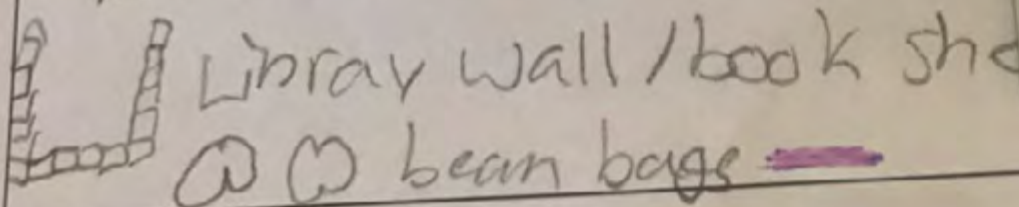 Libray wall / book
bean bags